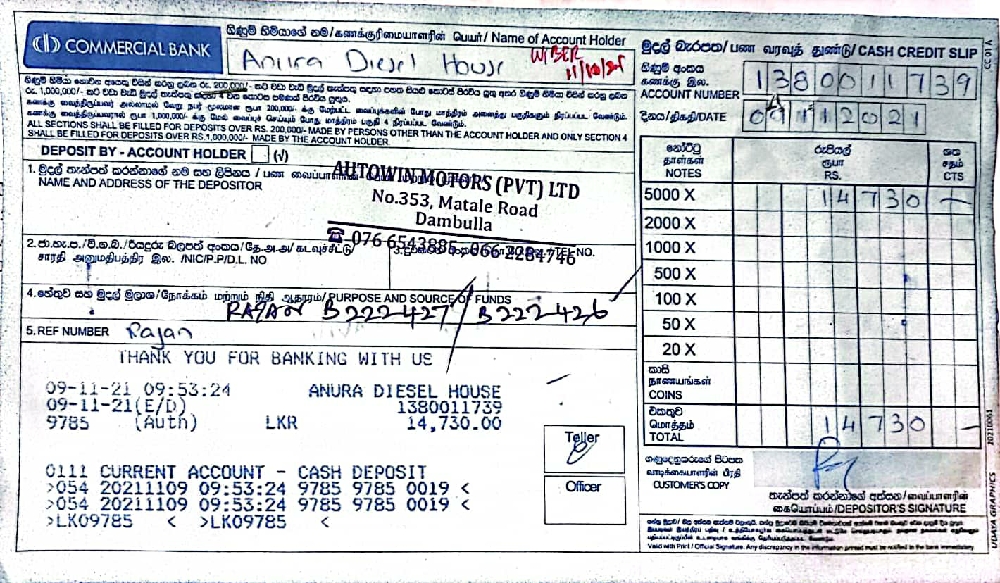 COMMERCIAL BANK
ගිණුම් හිමියාගේ නම/கணக்குரிமையாளரின் பெயர்/ Name of Account Holder
Anura Diesel House
මුදල් බැරපත/பண வரவுத் துண்டு/CASH CREDIT SLIP
CC 01 A
ගිණුම් අංකය
கணக்கு இல.
ACCOUNT NUMBER 1380011739
දිනය/திகதி/DATE 09112021
ALL SECTIONS SHALL BE FILLED FOR DEPOSITS OVER RS. 200,000/- MADE BY PERSONS OTHER THAN THE ACCOUNT HOLDER AND ONLY SECTION 4
SHALL BE FILLED FOR DEPOSITS OVER RS.1,000,000/- MADE BY THE ACCOUNT HOLDER.
DEPOSIT BY - ACCOUNT HOLDER (√)
NAME AND ADDRESS OF THE DEPOSITOR
AUTOWIN MOTORS (PVT) LTD
No.353, Matale Road
Dambulla
☎ 076 6543885, 066 2284746
සாරதி அනுமதிபத்திர இல. /NIC/P.P/D.L. NO
TEL NO.
4. හේතුව සහ මුදල් මූලාශ්‍ර/நோக்கம் மற்றும் நிதி ஆதாரம்/ PURPOSE AND SOURCE OF FUNDS
RAJAN B222427 / B222426
5. REF NUMBER Rajan
THANK YOU FOR BANKING WITH US
09-11-21 09:53:24 ANURA DIESEL HOUSE
09-11-21(E/D) 1380011739
9785 (Auth) LKR 14,730.00
0111 CURRENT ACCOUNT - CASH DEPOSIT
>054 20211109 09:53:24 9785 9785 0019 <
>054 20211109 09:53:24 9785 9785 0019 <
>LK09785 < >LK09785 <
Teller
Officer
නෝට්ටු
தாள்கள்
NOTES
රුපියල්
ரூபா
RS.
ශත
சதம்
CTS
5000 X 14730 -
2000 X
1000 X
500 X
100 X
50 X
20 X
කාසි
நாணயங்கள்
COINS
එකතුව
மொத்தம்
TOTAL 14730 -
ගනුදෙනුකරුගේ පිටපත
வாடிக்கையாளரின் பிரதி
CUSTOMER'S COPY
තැන්පත් කරන්නාගේ අත්සන/வைப்பாளரின்
கையொப்பம்/DEPOSITOR'S SIGNATURE
Valid with Print / Official Signature. Any discrepancy in the information printed must be notified to the bank immediately
UDAYA GRAPHICS